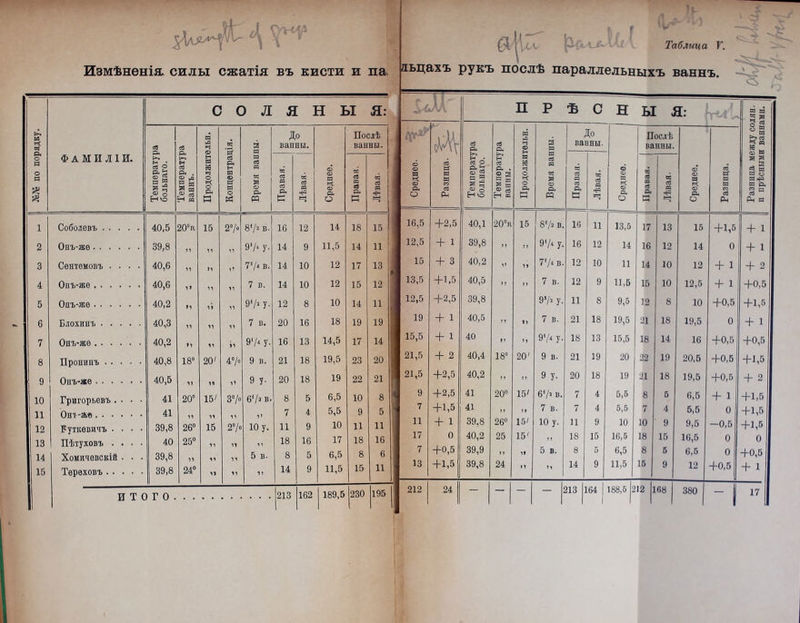 strength of grips
After parallel baths
Таблица V.
Измѣненія силы сжатія въ кисти и па
льцахъ рукъ послѣ параллельныхъ ваннъ.
СОЛЯНЫЯ:
Salt ПРѢСНЫЯ: fresh
№№ по порядку. ФАМИЛІИ. Температура больнаго. Температура ваннъ. Продолжительн. Концентрація. Время ванны. До ванны. Правая. Лѣвая. Среднее. Послѣ ванны. Правая. Лѣвая.
Среднее. Разница. Температура больнаго. Температура ванны. Продолжительн. Время ванны. До ванны. Правая. Лѣвая. Среднее. Послѣ ванны. Правая. Лѣвая. Среднее. Разница. Разница между солян. и прѣсными ваннами.
1 Соболевъ . . . . . 40,5 20°R 15 2°/o 8¹/₂ в. 16 12 14 18 15 16,5 +2,5 40,1 20°R 15 8¹/₂ в. 16 11 13,5 17 13 15 +1,5 + 1
2 Онъ-же . . . . . . 39,8 „ „ „ 9¹/₄ у. 14 9 11,5 14 11 12,5 + 1 39,8 „ „ 9¹/₄ у. 16 12 14 16 12 14 0 + 1
3 Сентемовъ . . . . 40,6 „ „ „ 7¹/₄ в. 14 10 12 17 13 15 + 3 40,2 „ „ 7¹/₄ в. 12 10 11 14 10 12 + 1 + 2
4 Онъ-же . . . . . . 40,6 „ „ „ 7 в. 14 10 12 15 12 13,5 +1,5 40,5 „ „ 7 в. 12 9 11,5 15 10 12,5 + 1 +0,5
5 Онъ-же . . . . . . 40,2 „ „ „ 9¹/₂ у. 12 8 10 14 11 12,5 +2,5 39,8 9³/₂ у. 11 8 9,5 12 8 10 +0,5 +1,5
6 Блохинъ . . . . . 40,3 „ „ „ 7 в. 20 16 18 19 19 19 + 1 40,5 „ „ 7 в. 21 18 19,5 21 18 19,5 0 + 1
7 Онъ-же . . . . . . 40,2 „ „ „ 9¹/₄ у. 16 13 14,5 17 14 15,5 + 1 40 „ „ 9¹/₄ у. 18 13 15,5 18 14 16 +0,5 +0,5
8 Пронинъ . . . . . 40,8 18° 20′ 4°/o 9 в. 21 18 19,5 23 20 21,5 + 2 40,4 18° 20′ 9 в. 21 19 20 22 19 20,5 +0,5 +1,5
9 Онъ-же . . . . . . 40,5 „ „ „ 9 у. 20 18 19 22 21 21,5 +2,5 40,2 „ „ 9 у. 20 18 19 21 18 19,5 +0,5 + 2
10 Григорьевъ . . . 41 20° 15′ 3°/o 6¹/₂ в. 8 5 6,5 10 8 9 +2,5 41 20° 15′ 6¹/₂ в. 7 4 5,5 8 5 6,5 + 1 +1,5
11 Онъ-же . . . . . . 41 „ „ „ „ 7 4 5,5 9 5 7 +1,5 41 „ „ 7 в. 7 4 5,5 7 4 5,5 0 +1,5
12 Руткевичъ . . . . 39,8 26° 15 2°/o 10 у. 11 9 10 11 11 11 + 1 39,8 26° 15′ 10 у. 11 9 10 10 9 9,5 —0,5 +1,5
13 Пѣтуховъ . . . . 40 25° „ „ „ 18 16 17 18 16 17 0 40,2 25 15′ „ 18 15 16,5 18 15 16,5 0 0
14 Хомичевскій . . . 39,8 „ „ „ 5 в. 8 5 6,5 8 6 7 +0,5 39,9 „ „ 5 в. 8 5 6,5 8 5 6,5 0 +0,5
15 Тереховъ . . . . . 39,8 24° „ „ „ 14 9 11,5 15 11 13 +1,5 39,8 24 „ „ 14 9 11,5 15 9 12 +0,5 + 1
ИТОГО . . . . . . . . . . . . 213 162 189,5 230 195 212 24 — — — — 213 164 188,5 212 168 380 — 17